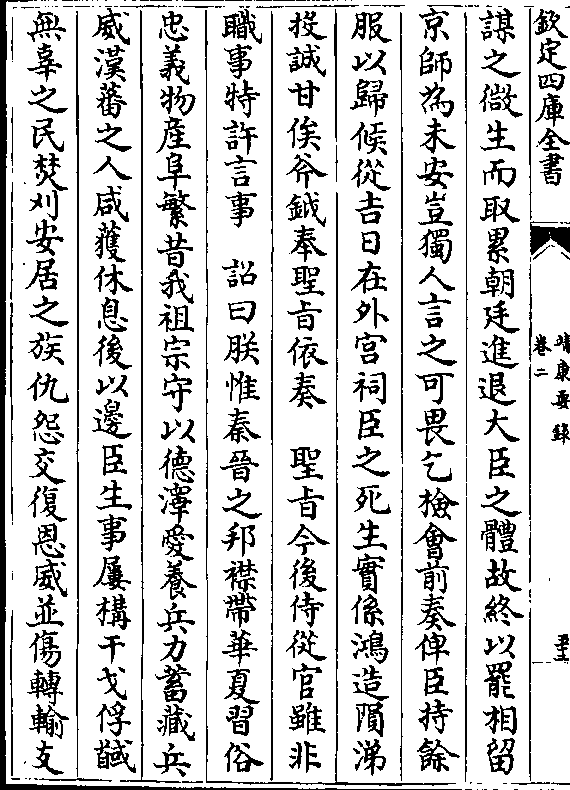 欽定四庫全書
靖康要錄
卷二
謀之微生而取累朝廷進退大臣之體故終以罷相留
京師為未安豈獨人言之可畏乞檢會前奏俾臣持餘
服以歸候從吉日在外宮祠臣之死生實係鴻造隕涕
投誠甘俟斧鉞奉聖㫖依奏　聖㫖今後侍從官雖非
職事特許言事　詔曰朕惟秦晉之邦襟帶華夏習俗
忠義物産阜繁昔我祖宗守以德澤愛養兵力蓄藏兵
威漢蕃之人咸獲休息後以邊臣生事屢構干戈俘馘
無辜之民焚刈安居之族仇怨交復恩威並傷轉輸支